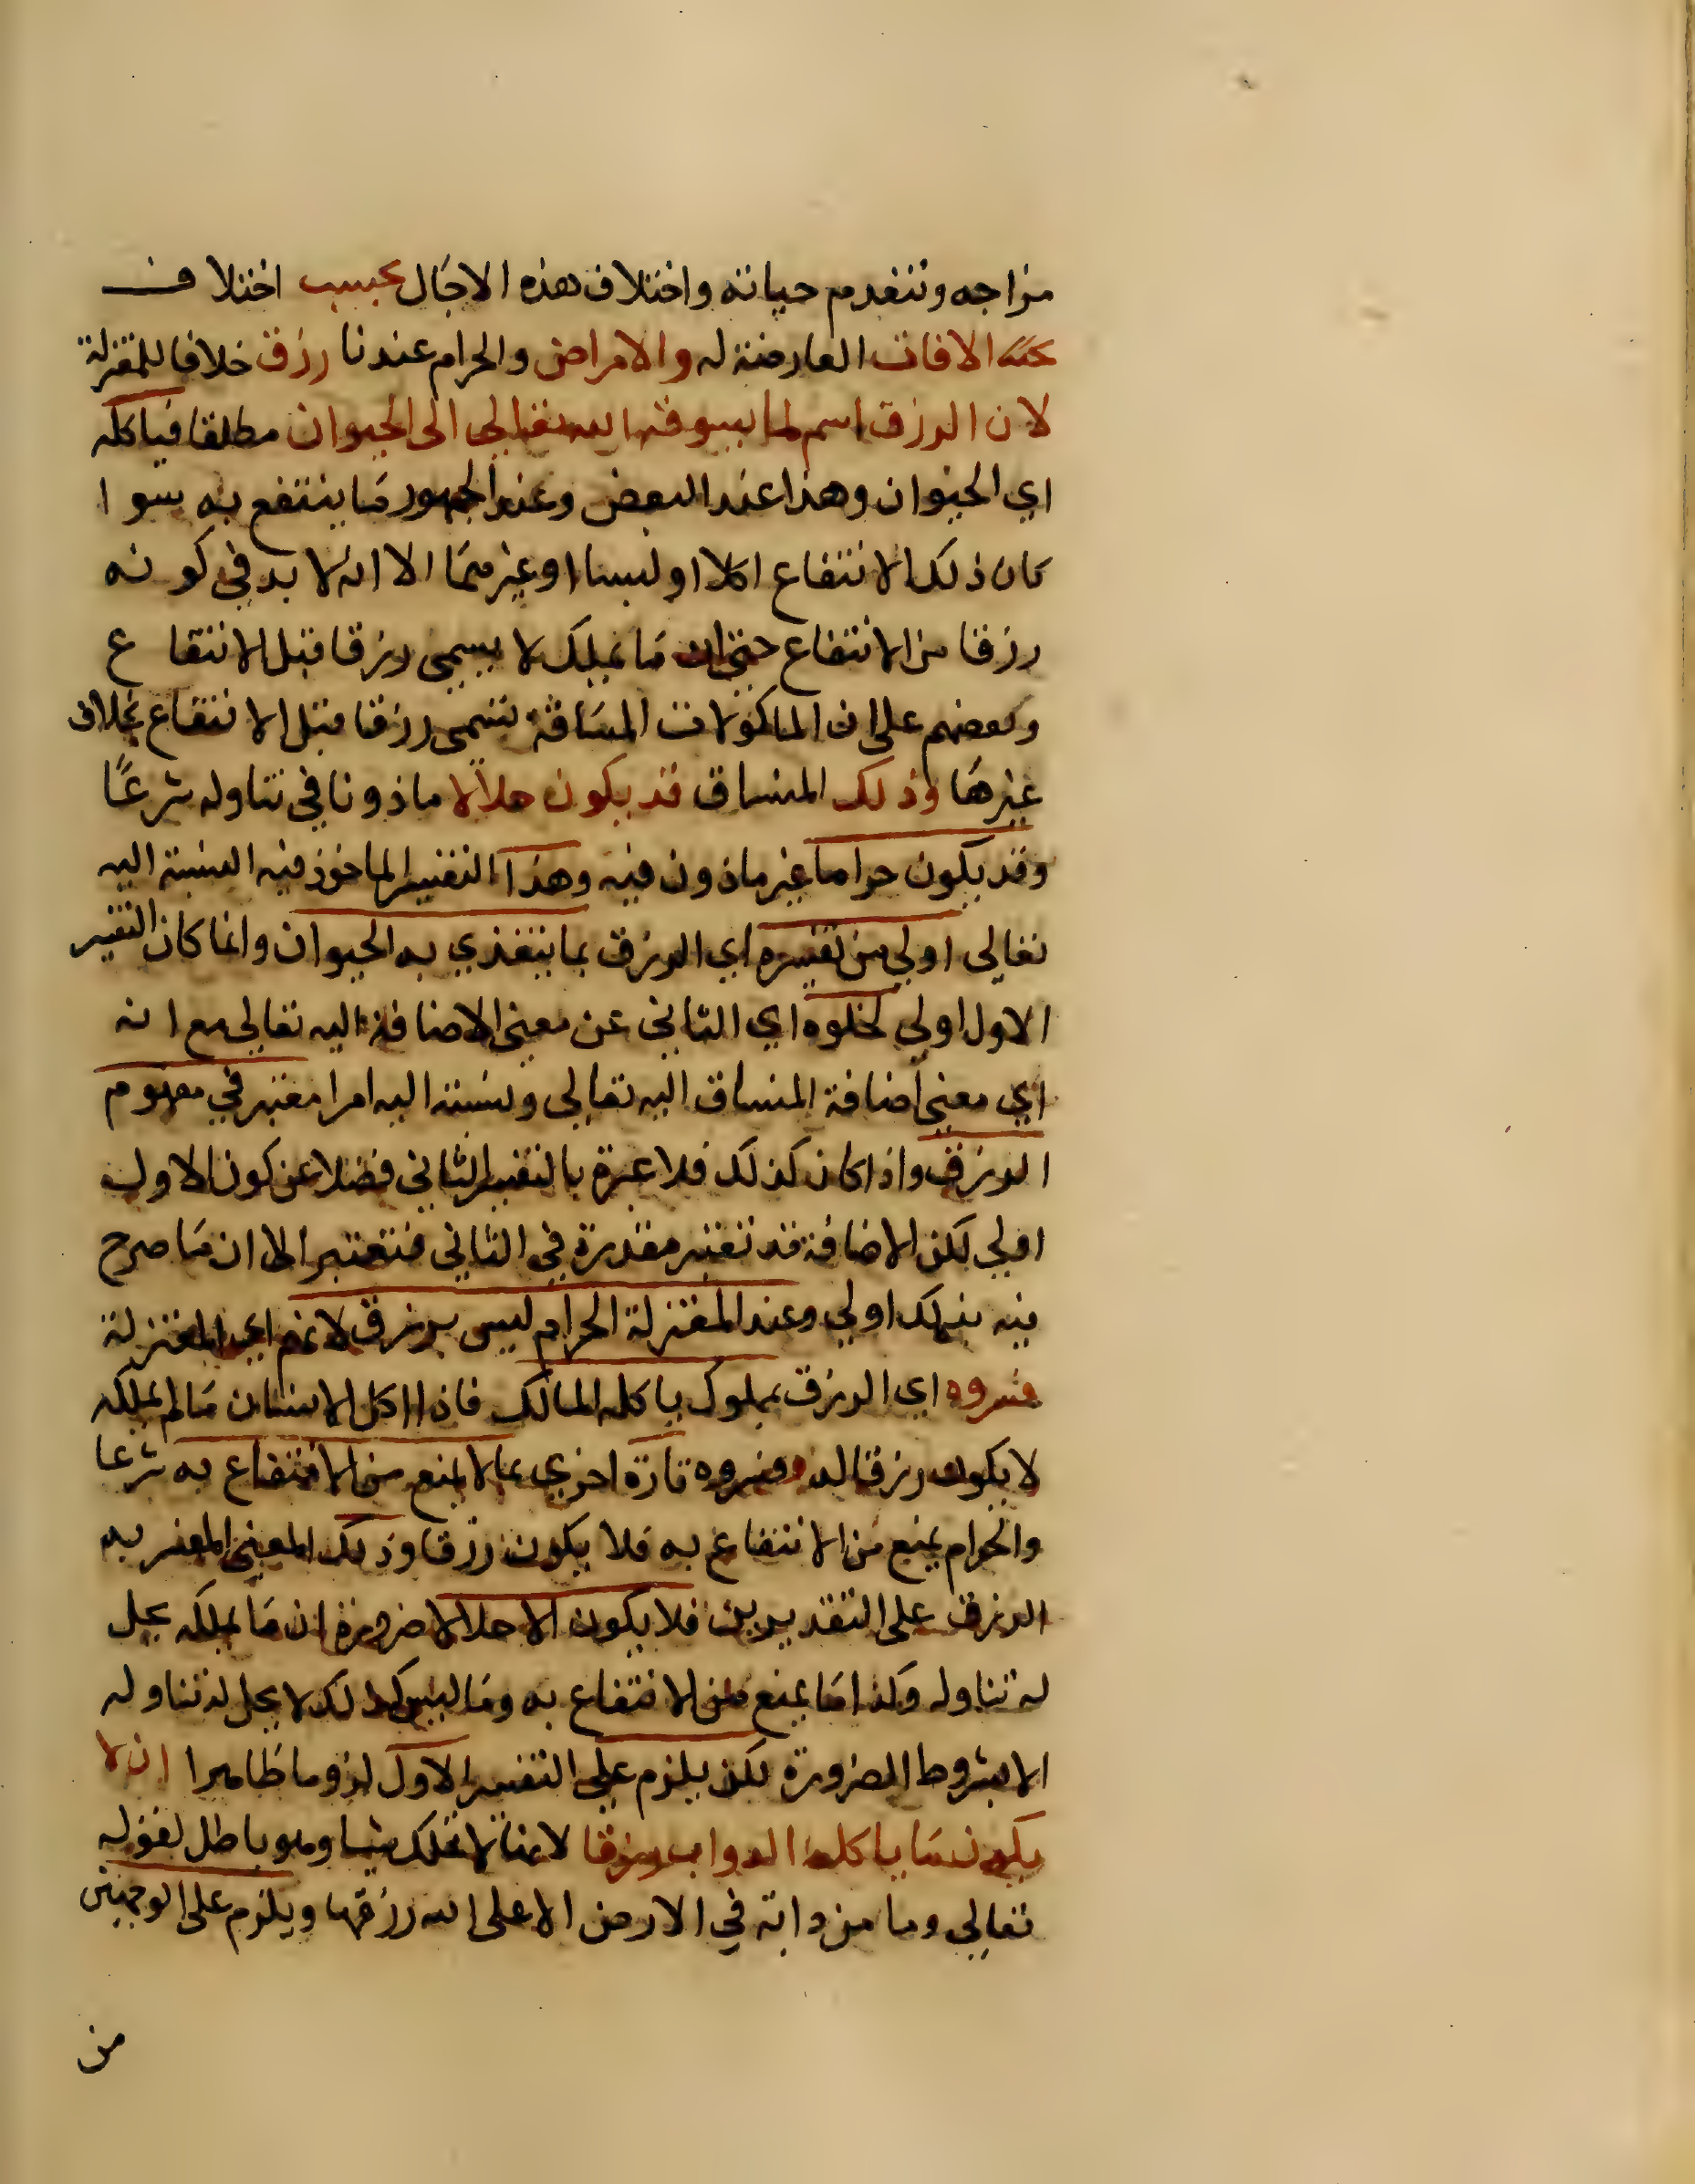 مزاجه وتنعدم حياته واختلاف هذه الاجال بحسب اختلاف
الافات العارضة له والامراض والحرام عندنا رزق خلافا للمعتزلة
لان الرزق اسم لما يسوقه الله تعالى الى الحيوان مطلقا فياكله
اي الحيوان وهذا عند البعض وعند الجمهور ما ينتفع به سوا
كان ذلك الانتفاع اكلا او لبسا او غيرهما الا انه لا بد في كونه
رزقا من الانتفاع حتى ان ما يملك لا يسمى رزقا قبل الانتفاع
وبعضهم على ان الماكولات المساقة تسمى رزقا قبل الانتفاع بخلاف
غيرها وذلك المنساق قد يكون حلالا ماذونا في تناوله شرعًا
وقد يكون حراما غير ماذون فيه وهذا التفسير الماخوذ فيه النسبة اليه
تعالى اولي من تفسيره اي الرزق بما يتغذي به الحيوان وانما كان التفسير
الاول اولي لخلوه اي الثاني عن معنى الاضافة اليه تعالى مع انه
اي معنى اضافة المنساق اليه تعالى ونسبته اليه امرا معتبر في مفهوم
الرزق واذا كان كذلك فلا عبرة بالتفسير الثاني فضلا عن كون الاول
اولي لكن الاضافة قد تعتبر مقدرة في الثاني فتعتبر الا ان ما صرح
فيه بذلك اولي وعند المعتزلة الحرام ليس برزق لانهم اي المعتزلة
فسروه اي الرزق بمملوك ياكله المالك فاذا اكل الانسان ما لم يملكه
لا يكون رزقا له وفسروه تارة اخري بما لا يمنع من الانتفاع به شرعا
والحرام يمنع من الانتفاع به فلا يكون رزقا وذلك المعنى المفسر به
الرزق على التقديرين فلا يكون الا حلالا ضرورة ان ما يملكه يحل
له تناوله وكذا ما يمنع من الانتفاع به وما ليس كذلك لا يحل له تناوله
الا بشروط الضرورة لكن يلزم على التفسير الاول لزوما ظاهرا ان لا
يكون ما ياكله الدواب رزقا لانها لا تملك شيا وهو باطل لقوله
تعالى وما من دابة في الارض الا على الله رزقها ويلزم على الوجهين
من